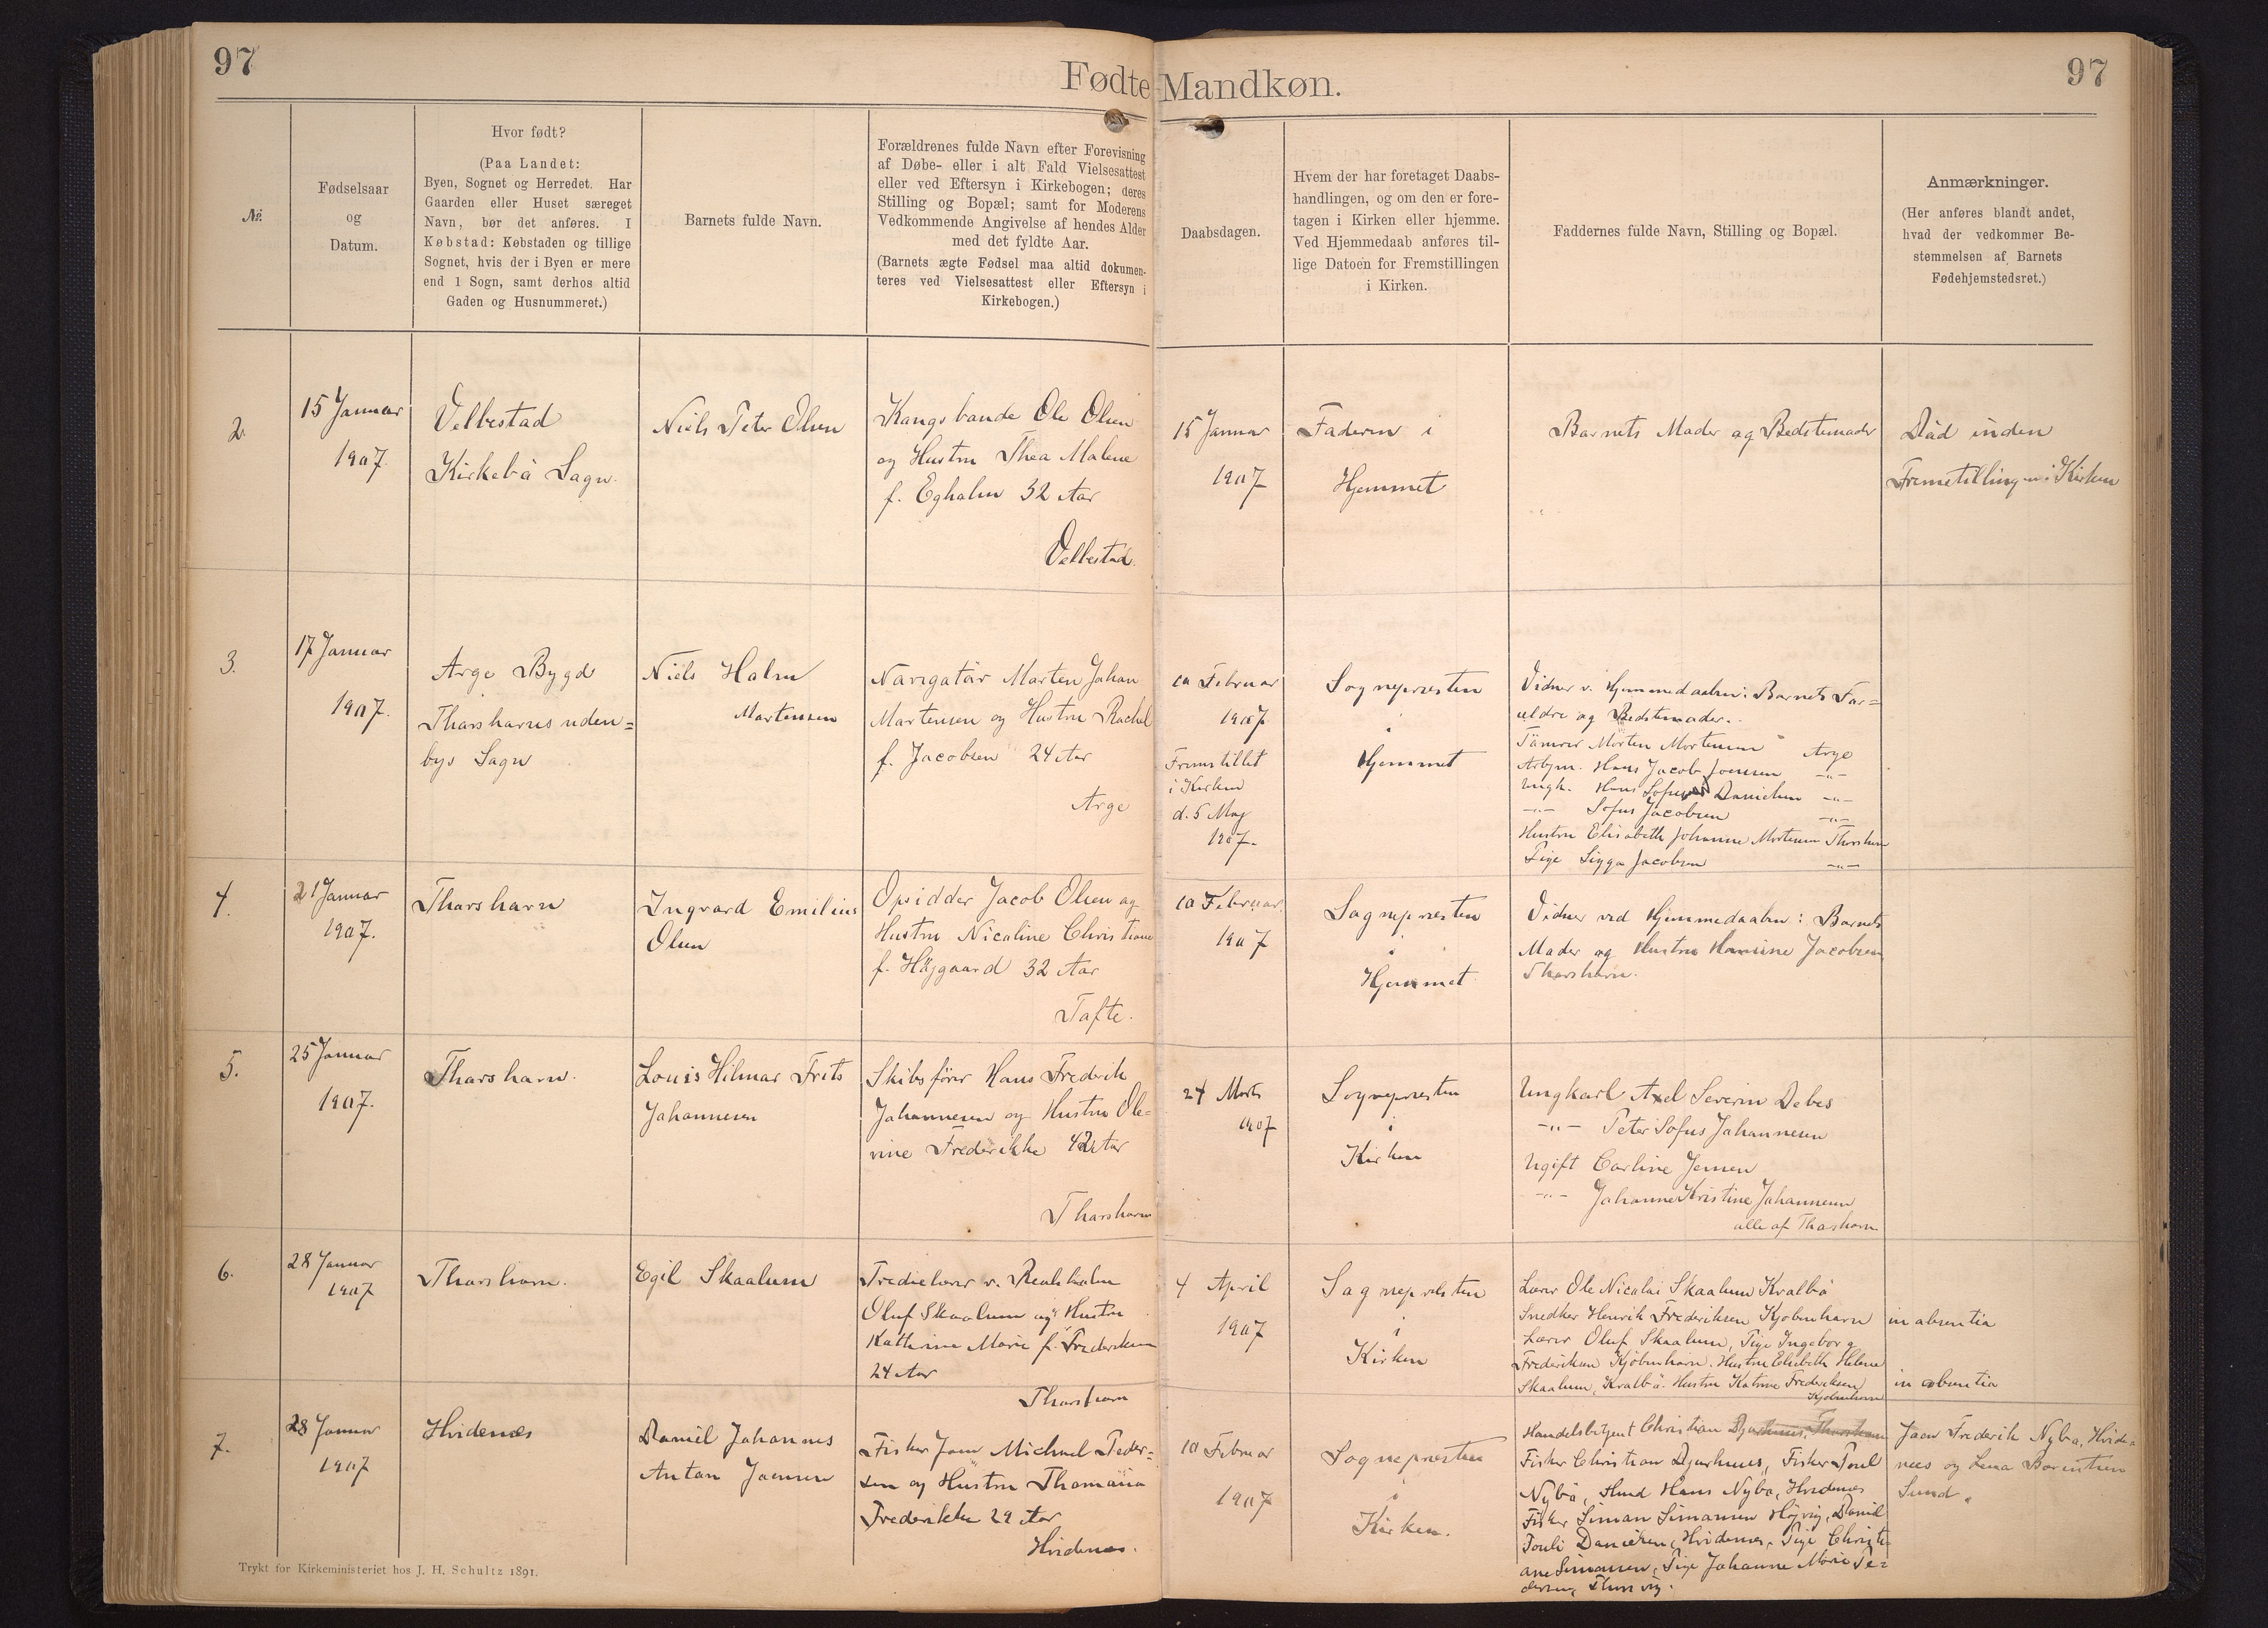 97
Fødte Mandkøn.
97
№
Fødselsaar
og
Datum.
Hvor født?
(Paa Landet:
Byen, Sognet og Herredet. Har
Gaarden eller Huset særeget
Navn, bør det anføres. I
Købstad: Købstaden og tillige
Sognet, hvis der i Byen er mere
end 1 Sogn, samt derhos altid
Gaden og Husnummeret.)
Barnets fulde Navn.
Forældrenes fulde Navn efter Forevisning
af Døbe- eller i alt Fald Vielsesattest
eller ved Eftersyn i Kirkebogen; deres
Stilling og Bopæl; samt for Moderens
Vedkommende Angivelse af hendes Alder
med det fyldte Aar.
(Barnets ægte Fødsel maa altid dokumen-
teres ved Vielsesattest eller Eftersyn i
Kirkebogen.)
Daabsdagen.
Hvem der har foretaget Daabs-
handlingen, og om den er fore-
tagen i Kirken eller hjemme.
Ved Hjemmedaab anføres til-
lige Datoen for Fremstillingen
i Kirken.
Faddernes fulde Navn, Stilling og Bopæl.
Anmærkninger.
(Her anføres blandt andet,
hvad der vedkommer Be-
stemmelsen af Barnets
Fødehjemstedsret.)
2.
15 Januar
1907.
Velbestad
Kirkebö Sogn.
Niels Peter Olsen
Kongsbonde Ole Olsen
og Hustru Thea Malene
f. Egholm 32 Aar
Velbestad.
15 Januar
1907
Faderen i
Hjemmet
Barnets Moder og Bedstemoder
Död inden
Fremstillingen i Kirken
3.
17 Januar
1907.
Arge Bygd
Thorshavns uden=
bys Sogn
Niels Holm
Mortensen
Navigatör Morten Johan
Mortensen og Hustru Rachel
f. Jacobsen 24 Aar
Arge
10 Februar
1907
Fremstillet
i Kirken
d. 5 Maj
1907.
Sognepresten
i
Hjemmet
Vidner v. Hjemmedaaben: Barnets For=
ældre og Bedstemoder.
Tömrer Morten Mortensen Arge
Arbjm. Hans Jacob Joensen -"-
Ungk. Hans Sofus Danielsen -"-
-"- Sofus Jacobsen -"-
Hustru Elisabeth Johanne Mortensen Thorshavn
Pige Sigga Jacobsen -"-
4.
21 Januar
1907.
Thorshavn
Ingvard Emilius
Olsen
Opsidder Jacob Olsen og
Hustru Nicoline Christiane
f. Höjgaard 32 Aar
Tofte.
10 Februar
1907
Sognepresten
i
Hjemmet
Vidner ved Hjemmedaaben: Barnets
Moder og Hustru Jacobsen
Thorshavn.
5.
25 Januar
1907.
Thorshavn.
Louis Hilmar Frits
Johannesen
Skibsförer Hans Frederik
Johannesen og Hustru Ole-
vine Frederikke 42 Aar
Thorshavn
24 Marts
1907
Sognepresten
i
Kirken
Ungkarl Axel Severin Debes
-"- Peter Sofus Johannesen
Ugift Carline Jensen
-"- Johanne Kristine Johannesen
alle af Thorshavn
6.
28 Januar
1907
Thorshavn.
Egil Skaalum
v. Realskolen
Oluf Skaalum og Hustru
Kathrine Marie f. Frederiksen
24 Aar
Thorshavn
4 April
1907
Sognepresten
i
Kirken
Lærer Ole Nicolai Skaalum Kvalbö
Snedker Henrik Frederiksen Kjobenhavn
Lærer Oluf Skaalum, Pige Ingeborg
Frederiksen Kjöbenhavn. Hustru Elsebeth Helene
Skaalum, Kvalbö. Hustru Katrine Frederiksen
Kjobenhavn
in absentia
in absentia
7.
28 Januar
1907
Hvidenæs
Daniel Johannes
Anton Joensen
Fisker Joen Michael Peder=
sen og Hustru Thomasia
Frederikke 29 Aar
Hvidenæs.
10 Februar
1907
Sognepresten
i
Kirken.
Handelsbetjent Christian Djurhuus, Thorshavn
Fisker Christian Djurhuus, Fisker Poul
Nybo, Hans Nybo, Hvidenæs
Fisker Simon Simonsen Höjvig, Daniel
Pouli Danielsen, Hvidenes, Pige Christi-
ane Simonsen, Pige Johanne Marie Pe=
dersen,
Joen Frederik Nybo, Hvide-
næs og Lena Berentsen
Sund.
Trykt for Kirkeministeriet hos J. H. Schultz 1891.